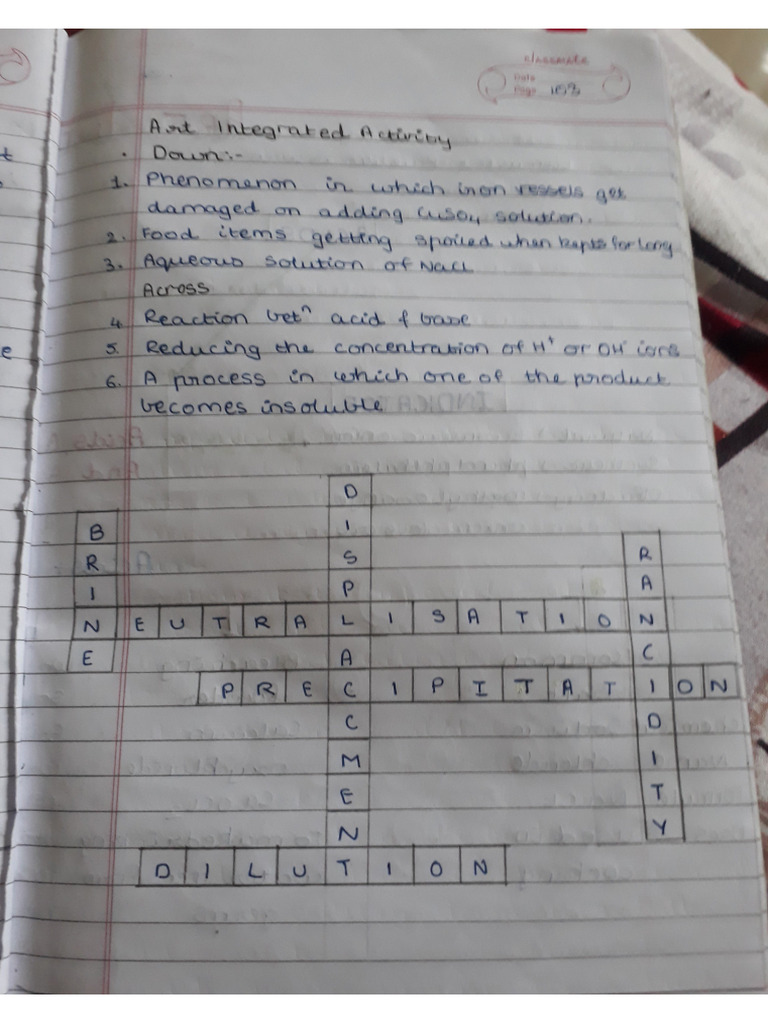 classmate
Date
Page 163
Art Integrated Activity
. Down:-
1. Phenomenon in which iron vessels get
damaged on adding CuSO4 solution.
2. Food items getting spoiled when kepts for long
3. Aqueous solution of NaCl
Across
4. Reaction betⁿ acid & base
5. Reducing the concentration of H⁺ or OH⁻ ions
6. A process in which one of the product
becomes insoluble
D
B I
R S R
I P A
N E U T R A L I S A T I O N
E A C
P R E C I P I T A T I O N
C D
M I
E T
N Y
D I L U T I O N